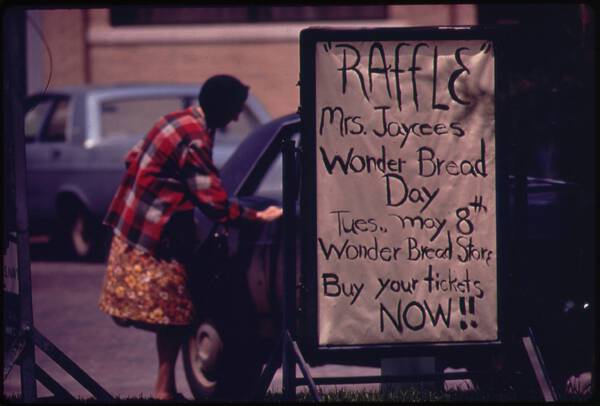 "RAFFLE"
Mrs. Jaycees
Wonder Bread
Day
Tues., may 8th
Wonder Bread Store
Buy your tickets
NOW!!